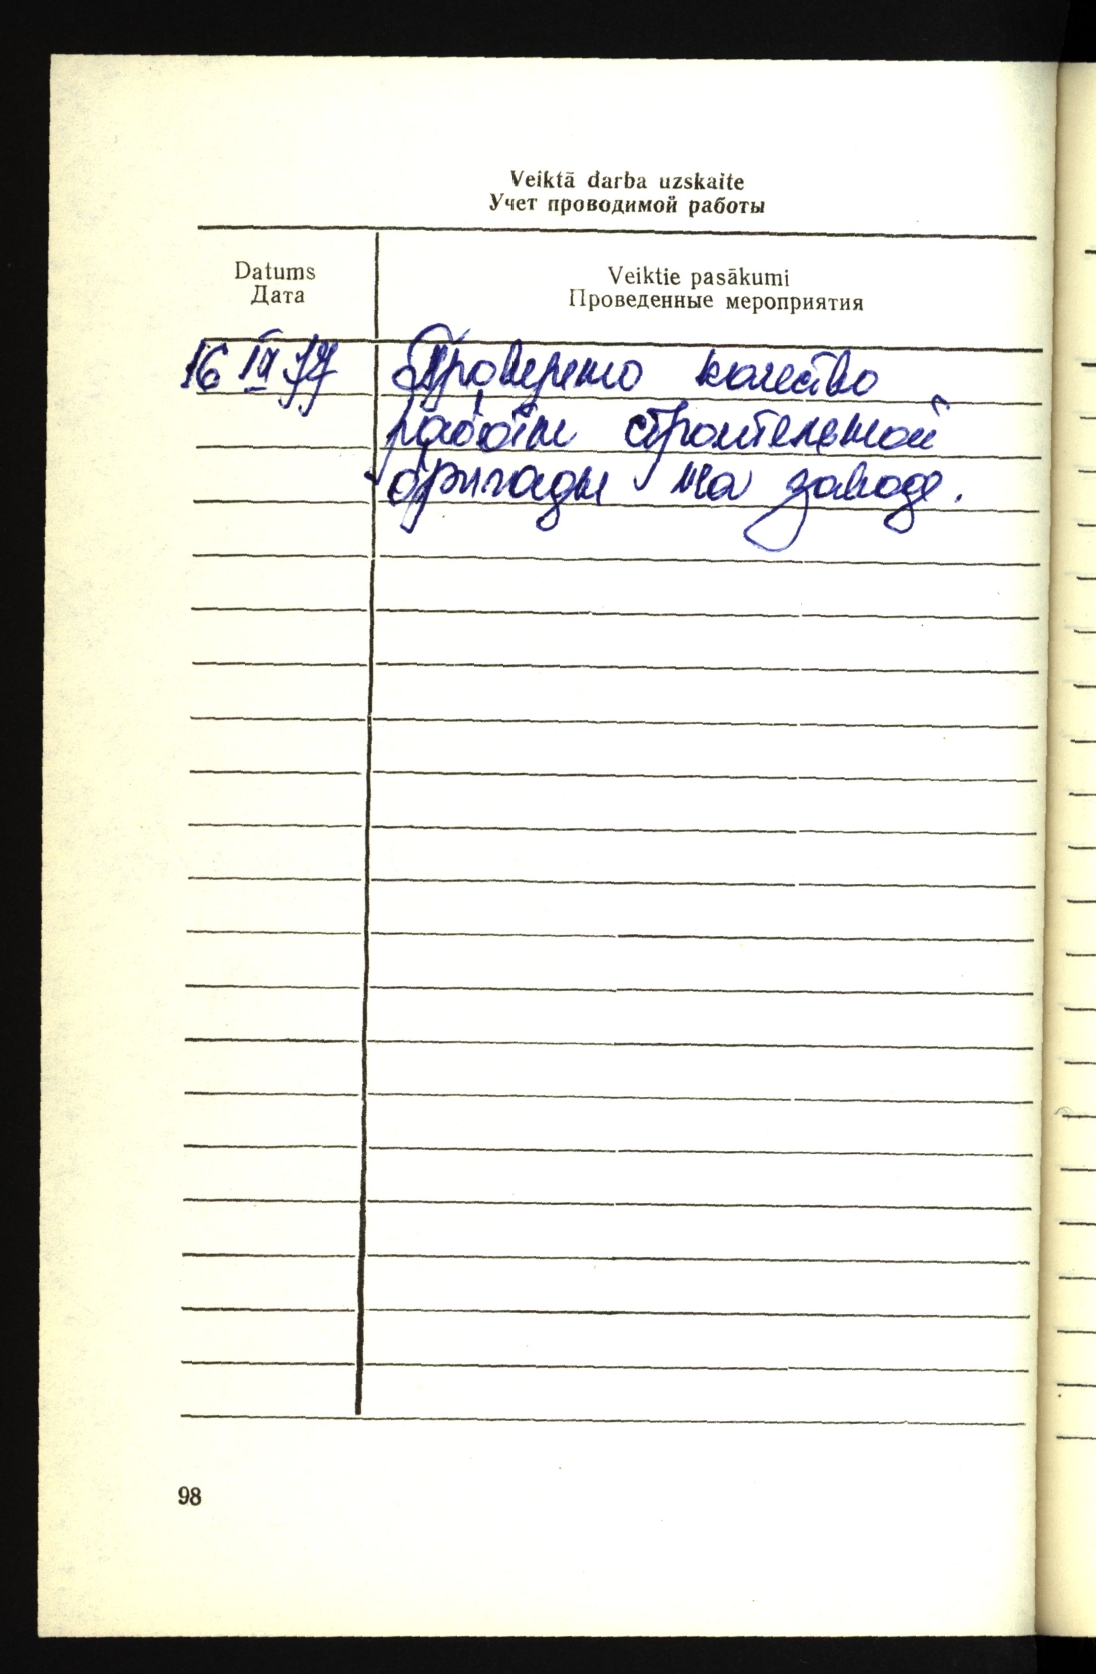 Veiktā darba uzskaite
Учет проводимой работы
Datums
Дата
Veiktie pasākumi
Проведенные мероприятия
16 IV 77 Проверено качество
работы строительной
бригады на заводе.
98